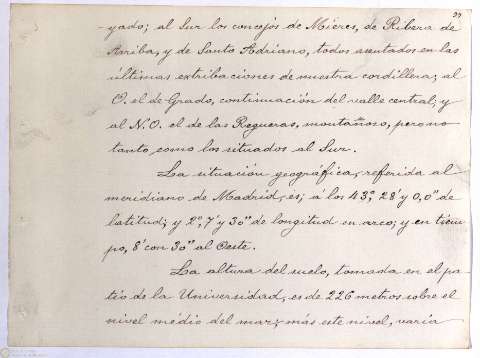 yado; al Sur los concejos de Mieres, de Ribera de
Arriba, y de Santo Adriano, todos asentados en las
últimas extribaciones de nuestra cordillera; al
O. el de Grado, continuación del valle central; y
al N.O. el de las Regueras, montañoso, pero no
tanto, como los situados al Sur.
La situación geográfica, referida al
meridiano de Madrid, es; á los 43°, 28' y 0,0" de
latitud; y 2°, 7' y 30" de longitud en arco; y en tiem
po, 8' con 30" al Oeste.
La altura del suelo, tomada en el pa-
tio de la Universidad, es de 226 metros sobre el
nivel médio del mar; más este nivel, varía